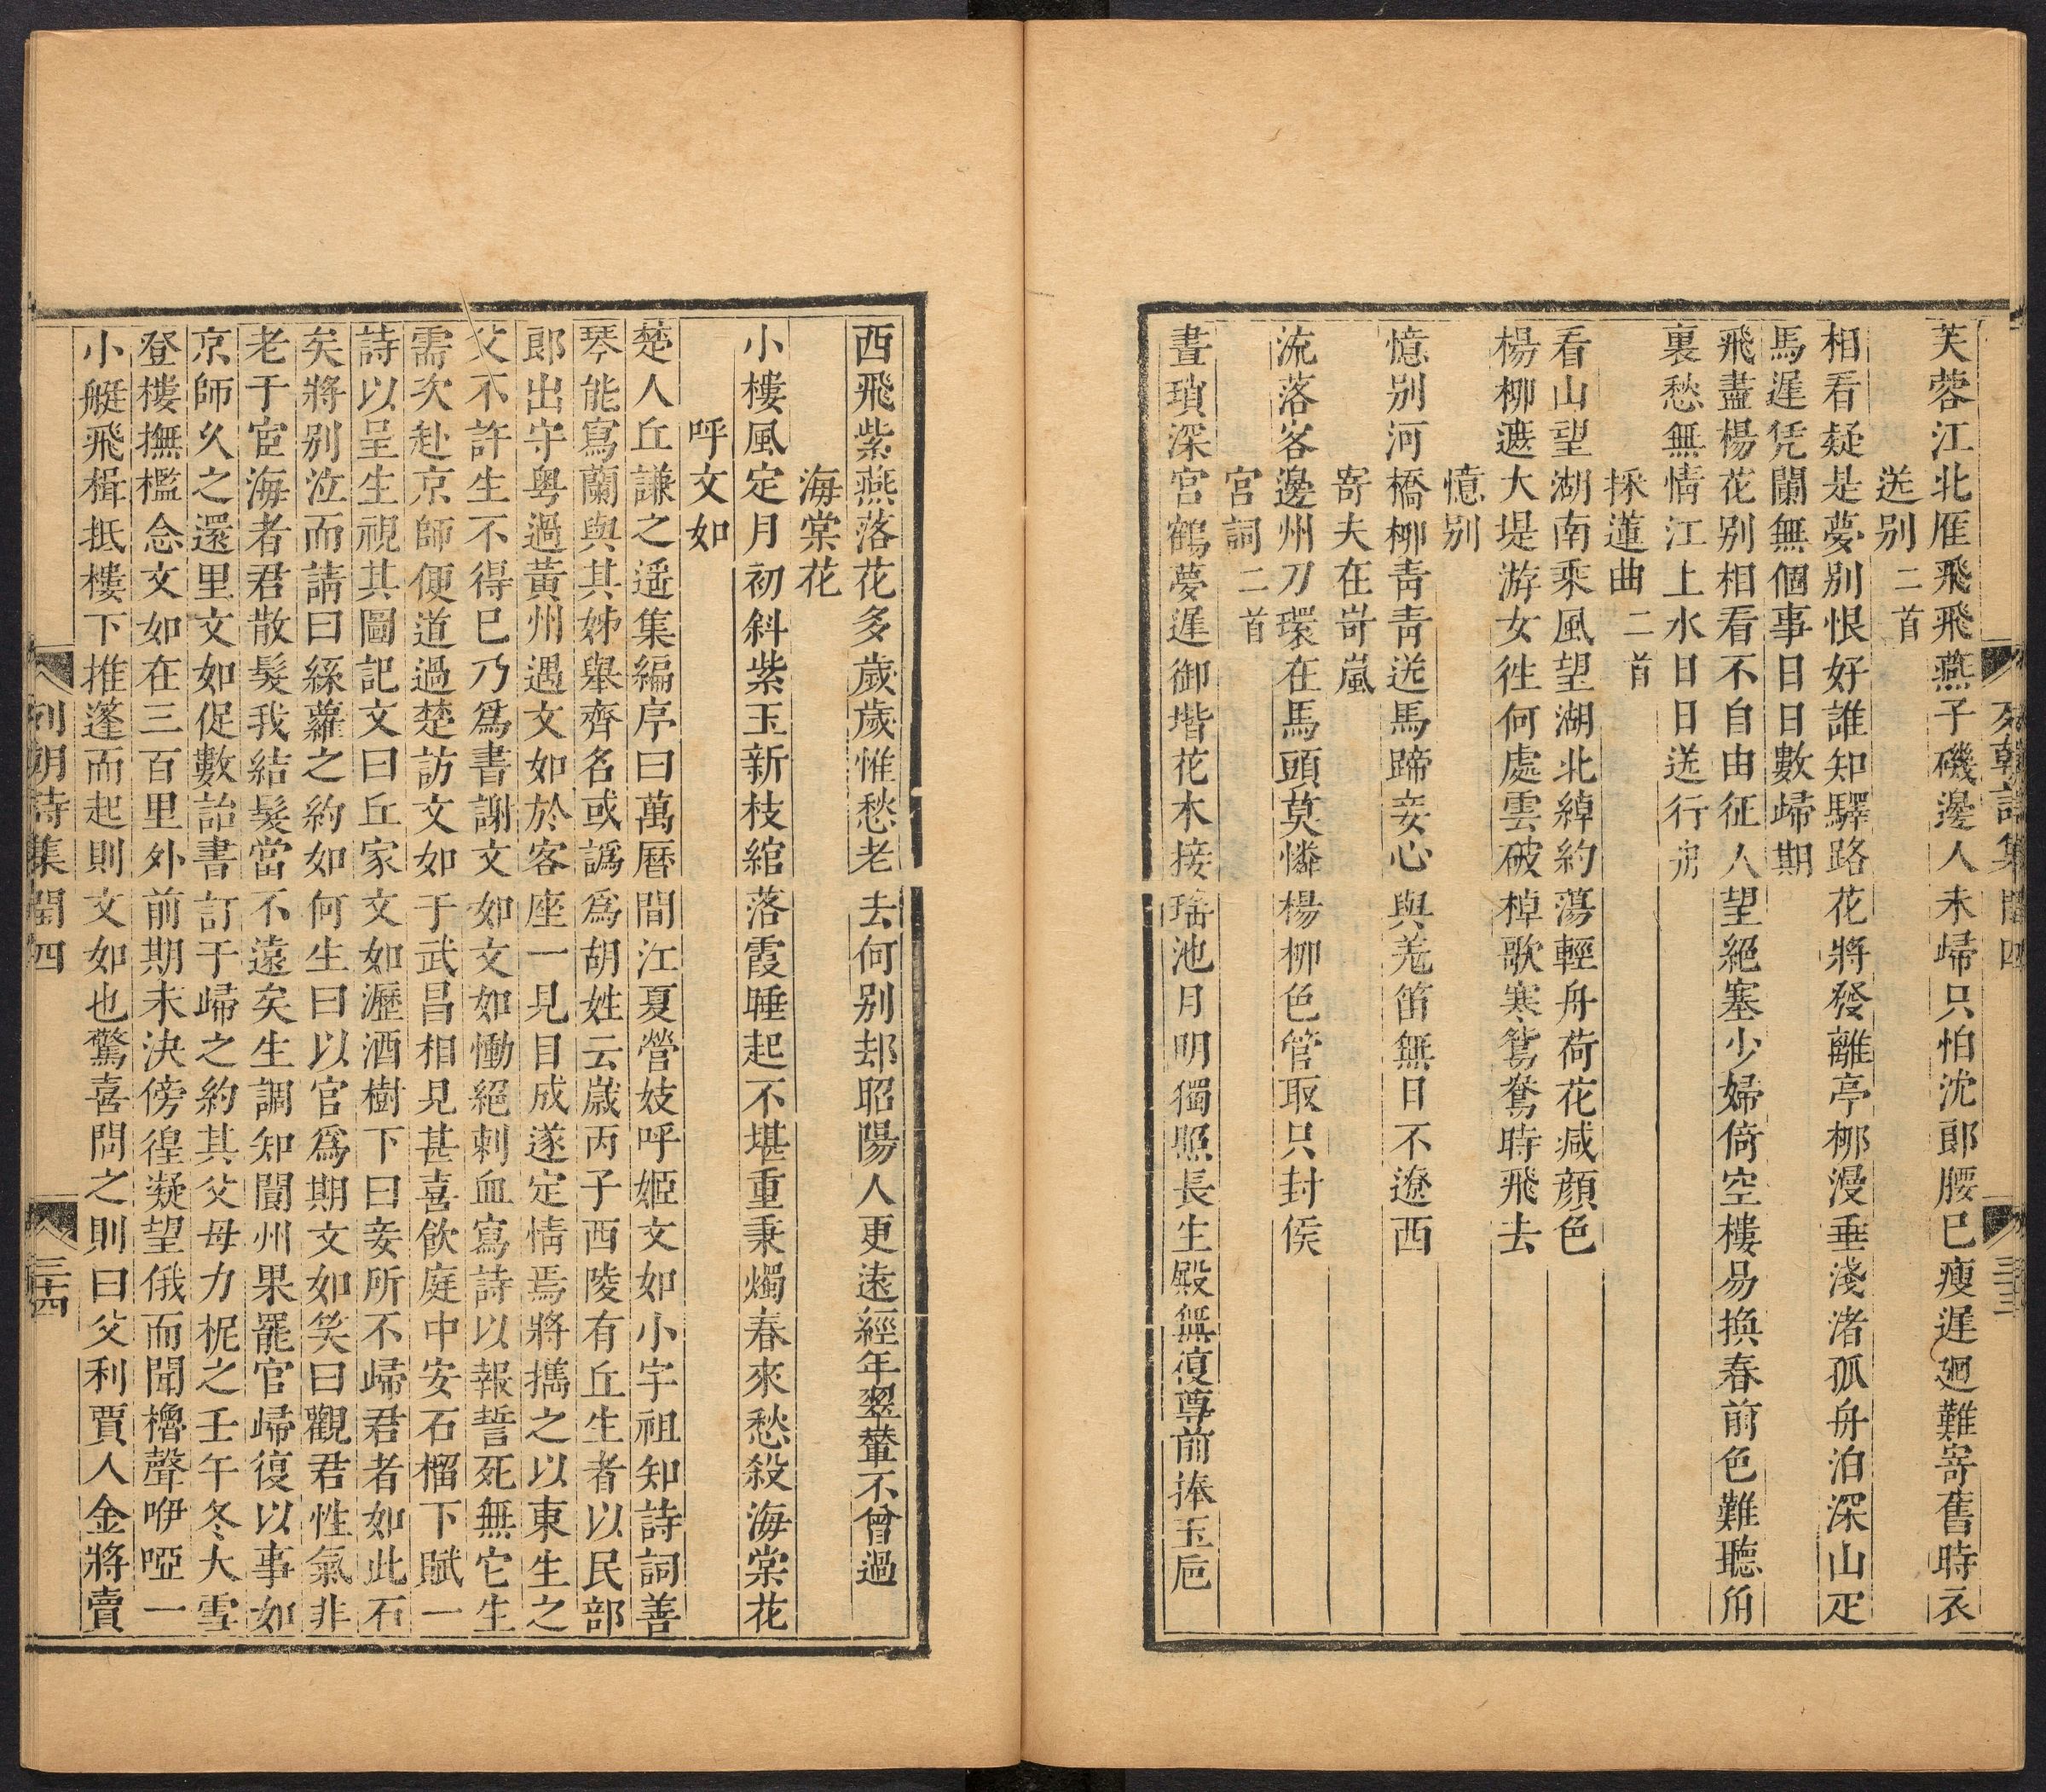 芙蓉江北雁飛飛燕子磯邊人未歸只怕沈郎腰巳瘦遲廻難寄舊時衣
送别二首
相看疑是夢别恨好誰知驛路花將發離亭柳漫垂淺渚孤舟泊深山疋
馬遲凭闌無個事日日數歸期
飛盡楊花别相看不自由征人望絕塞少婦倚空樓易換春前色難聽角
裏愁無情江上水日日送行舟
採蓮曲二首
看山望湖南乘風望湖北綽約蕩輕舟荷花減顔色
楊柳遮大堤游女徃何處雲破棹歌寒鴛鴦時飛去
憶别
憶别河橋柳靑靑送馬蹄妾心與羌笛無日不遼西
寄夫在岢嵐
流落客邊州刀環在馬頭莫憐楊柳色管取只封侯
宮詞二首
晝瑣深宮鶴夢遲御堦花木接瑤池月明獨照長生殿無復尊前捧玉巵
列朝詩集閏四
三十三
西飛紫燕落花多歲歲惟愁老去何别却昭陽人更遠經年翠輦不曾過
海棠花
小樓風定月初斜紫玉新枝綰落霞睡起不堪重秉燭春來愁殺海棠花
呼文如
楚人丘謙之遥集編序曰萬曆間江夏營妓呼姬文如小字祖知詩詞善
琴能寫蘭與其姊舉齊名或譌爲胡姓云歲丙子西陵有丘生者以民部
郎出守粤過黃州遇文如於客座一見目成遂定情焉將擕之以東生之
父不許生不得巳乃爲書謝文如文如慟絕刺血寫詩以報誓死無它生
需次赴京師便道過楚訪文如于武昌相見甚喜飲庭中安石榴下賦一
詩以呈生視其圖記文曰丘家文如瀝酒樹下曰妾所不歸君者如此石
矣將别泣而請曰絲蘿之約如何生曰以官爲期文如笑曰觀君性氣非
老于宦海者君散髮我結髮當不遠矣生調知閬州果罷官歸復以事如
京師久之還里文如促數詒書訂于歸之約其父母力柅之壬午冬大雪
登樓撫檻念文如在三百里外前期未決傍徨凝望俄而聞櫓聲咿啞一
小艇飛楫抵樓下推蓬而起則文如也驚喜問之則曰父利賈人金將賣
列朝詩集閏四
三十四